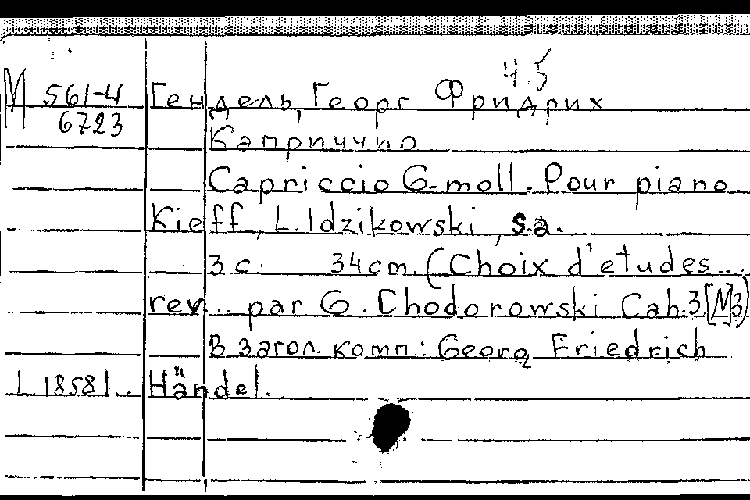 4.5
М 561-4 Гендель, Георг Фридрих
6723
Каприччио
Capriccio G-moll. Pour piano
Kieff, L. Idzikowski, s.a.
3 с. 34 cm. (Choix d'etudes...
rev... par G. Chodorowski Cah.3[N3)
В загол. комп.: Georg Friedrich
L 18581. Händel.